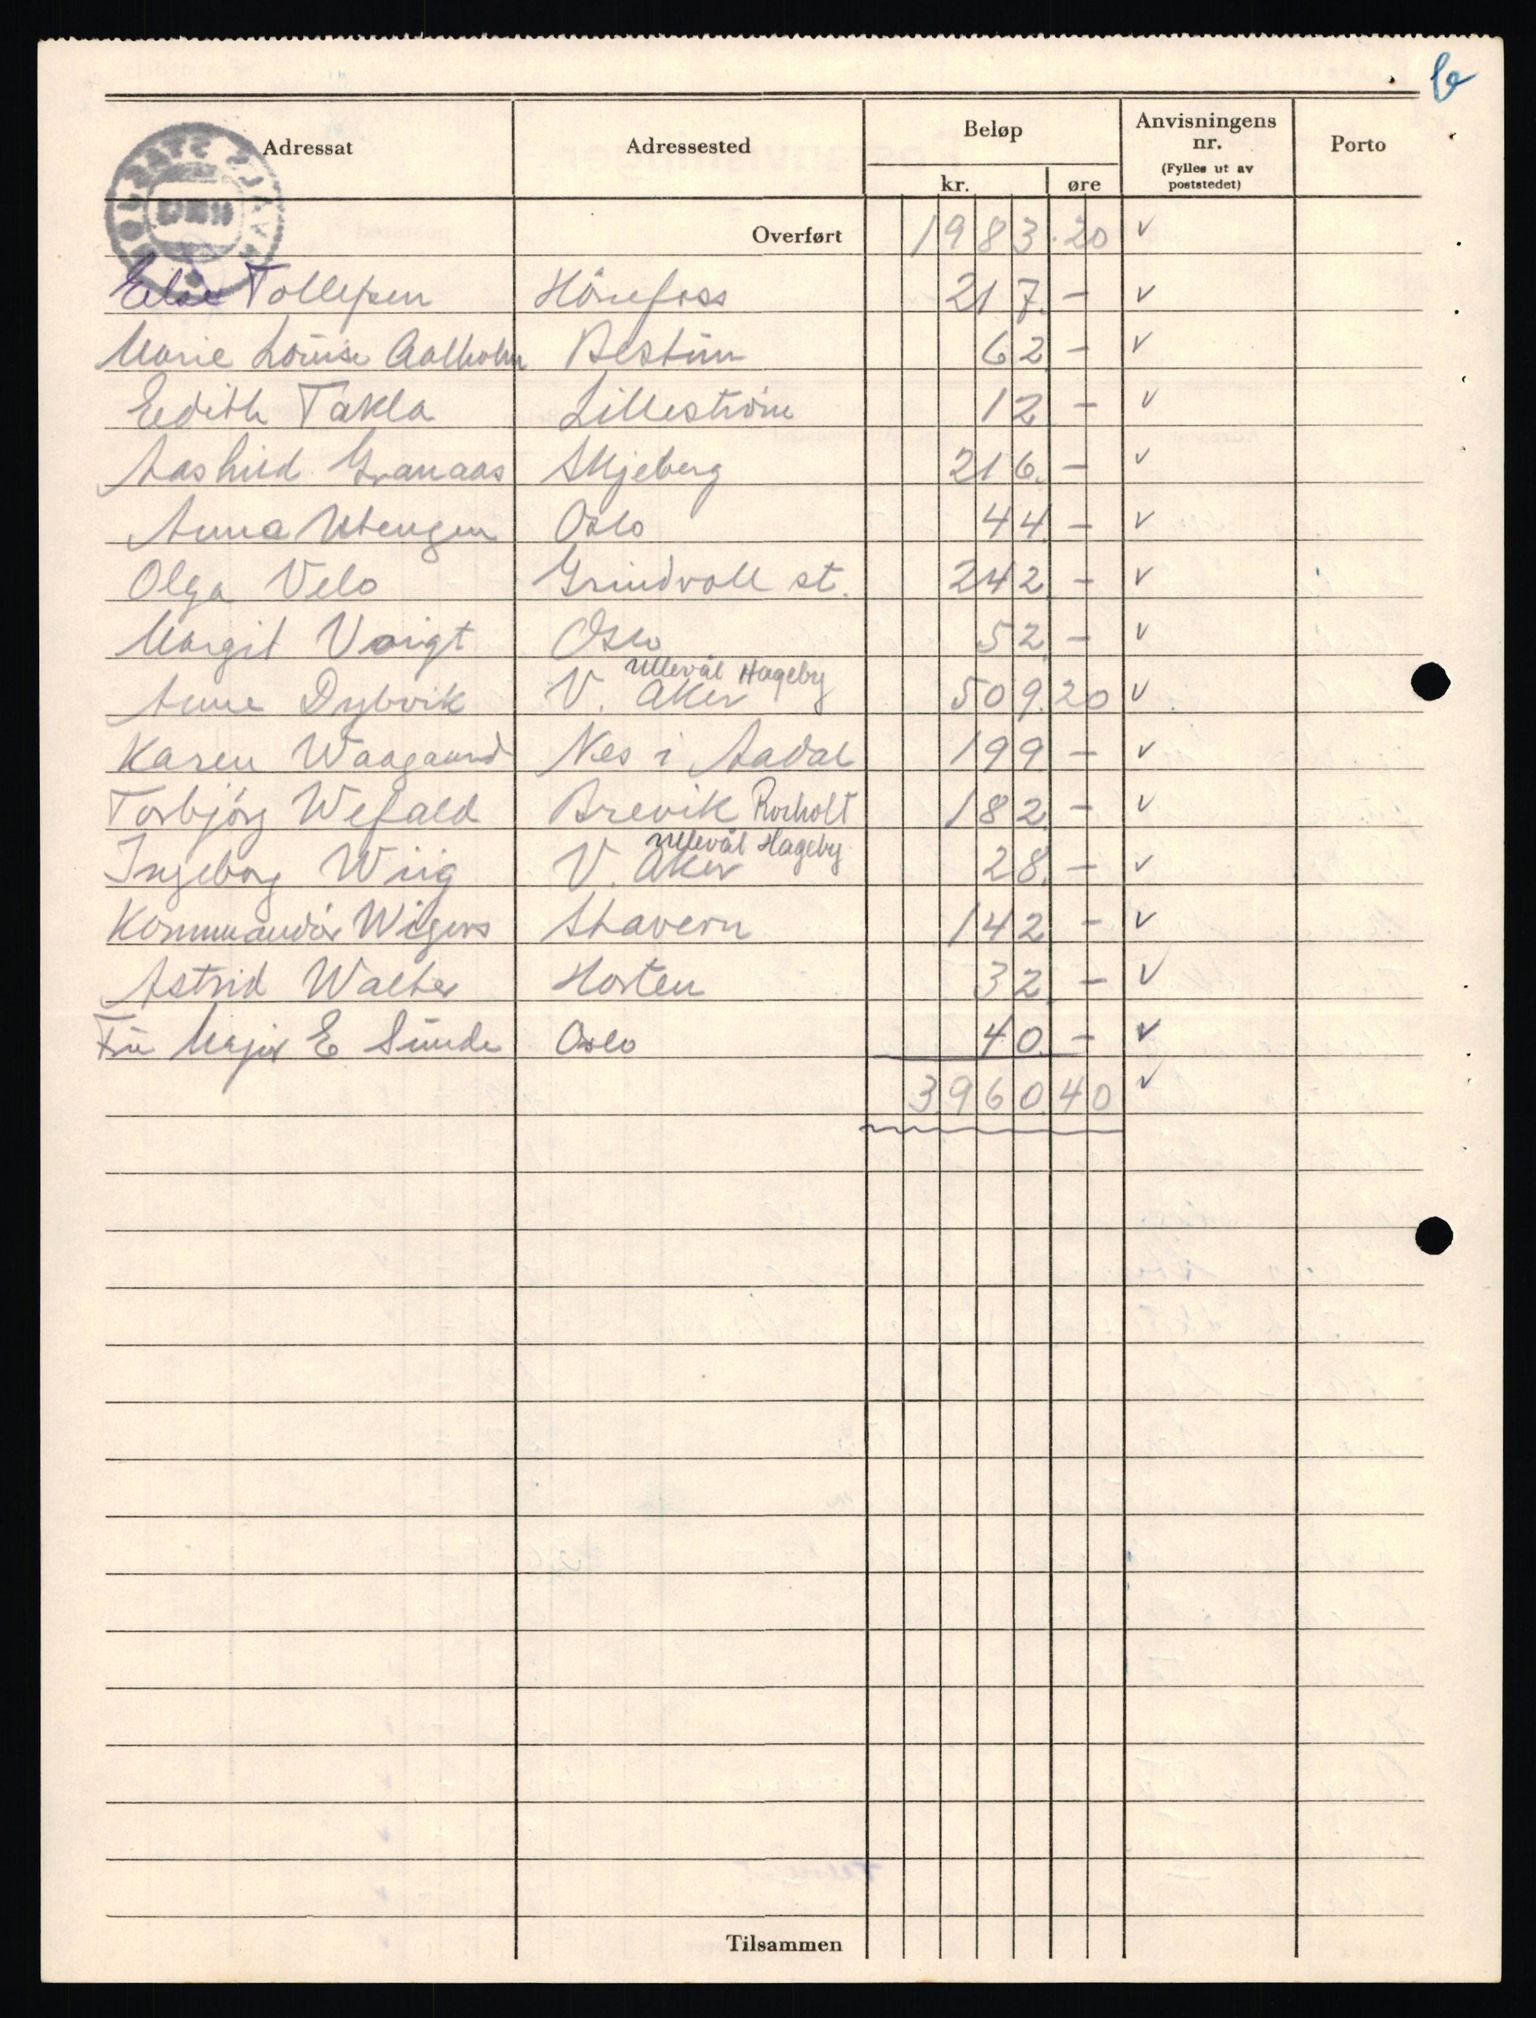 Adressat Adressested Beløp Anvisningens nr. (Fylles ut av poststedet) Porto
kr. øre
Overført 1983.20 ✓
Tollefsen Hönefoss 217.- ✓
Marie Louise Aalholm Bestum 62.- ✓
Edith Takla Lilleström 12.- ✓
Aashild Granaas Skjeberg 216.- ✓
Anna Utengen Oslo 44.- ✓
Olga Velo Grindvoll st. 242.- ✓
Margit Voigt Oslo 52.- ✓
Ullevål Hageby
Anne Dybvik V. Aker 509.20 ✓
Karen Waagaard Nes i Aadal 199.- ✓
Torbjörg Wefald Brevik Rosholt 182.- ✓
Ullevål Hageby
Ingeborg Wiig V. Aker 28.- ✓
Kommandör Wigers Stavern 142.- ✓
Astrid Walter Horten 32.- ✓
Fru Major E Sunde Oslo 40.- ✓
3960.40 ✓
Tilsammen